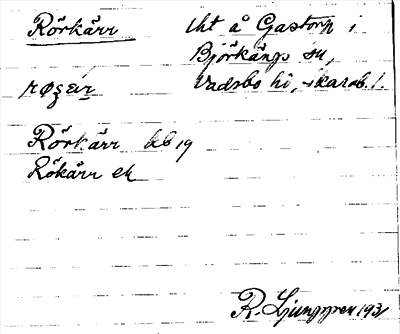 Rörkärr lht å Gastorp i
Björkängs sn,
røʒær, Vadsbo hd, Skarab. l.
Rörkärr kb 19
Rökärr ek
R. Ljunggren 1931